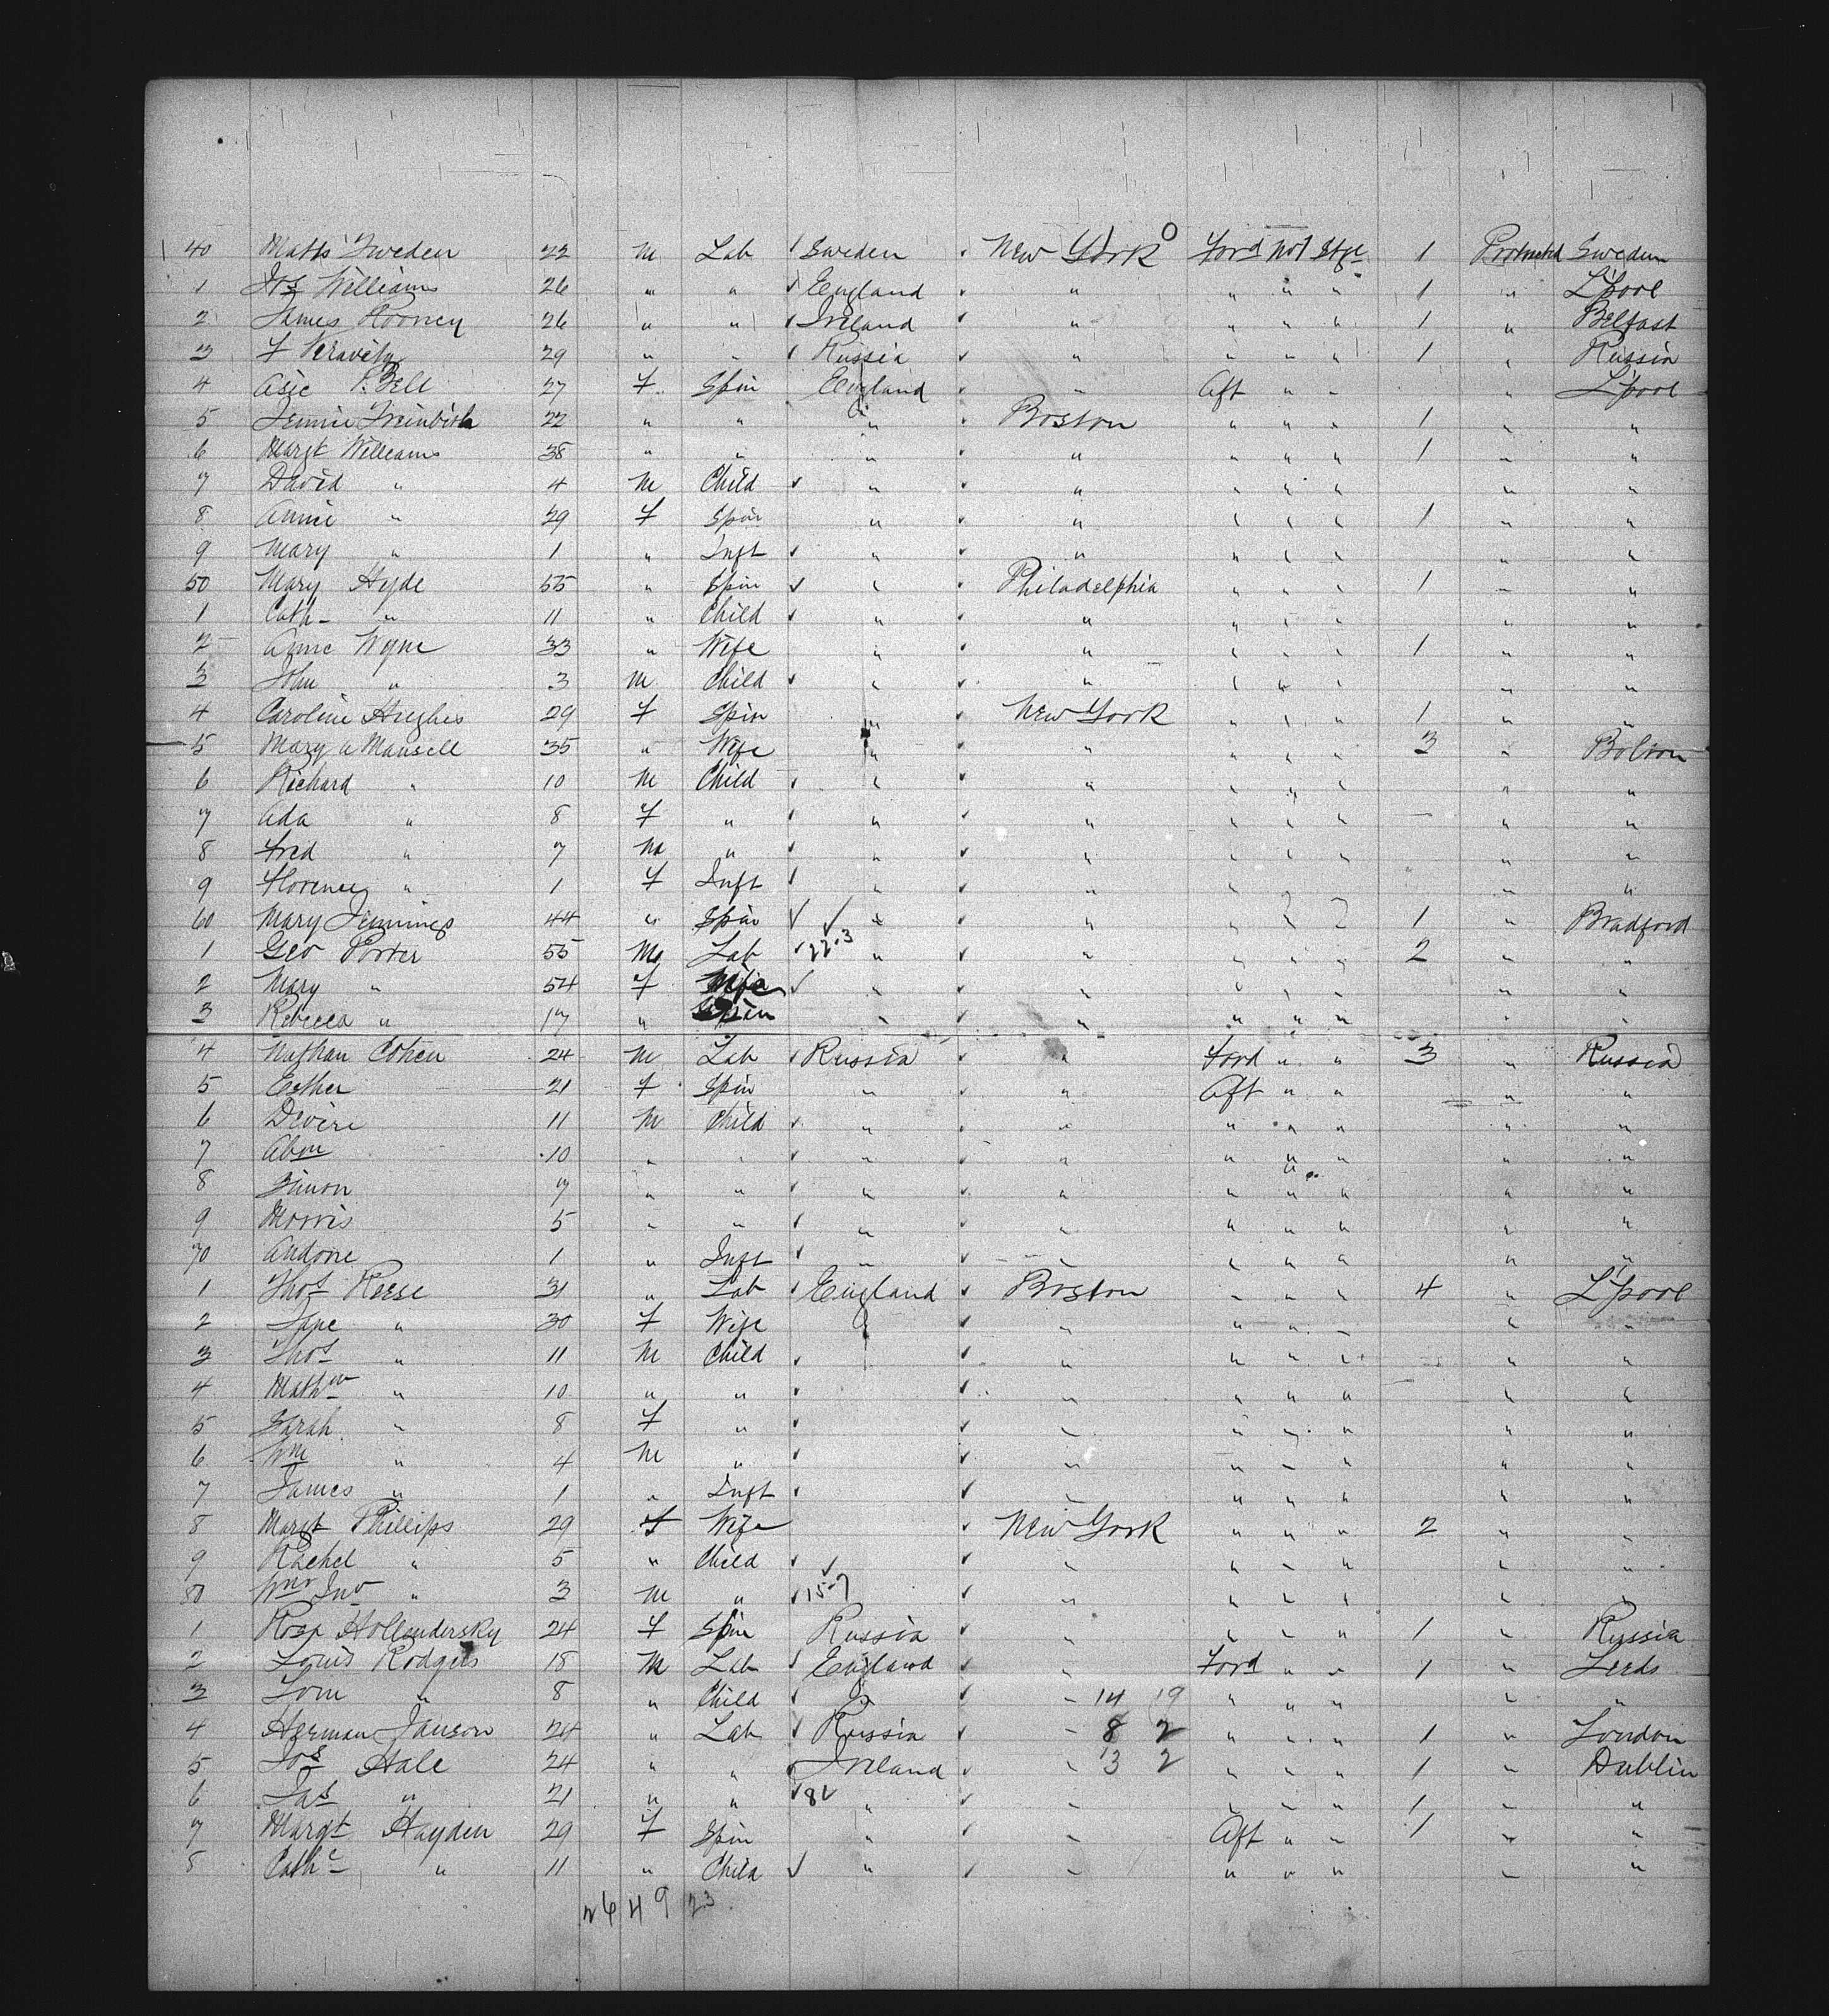 40 Matts Sweden 22 m Lab Sweden New York Ford No 1 Stge 1 Protracted Sweden
1 Jos Williams 26 " " England " " " " 1 " L'pool
2 James Rooney 26 " " Ireland " " " " 1 " Belfast
3 F 29 " " Russia " " " " 1 " Russia
4 Asie P. Bell 27 F Spin England " Aft " " " L'pool
5 Jennie 22 " " " Boston " " " 1 " "
6 Margt Williams 38 " " " " " " " 1 " "
7 David " 4 m Child " " " " " " "
8 Annie " 29 F Spin " " " " " 1 " "
9 Mary " 1 " Inft " " " " " " "
50 Mary Hyde 55 " Spin " Philadelphia " " " 1 " "
1 Cath " 11 " Child " " " " " " "
2 Annie Wyne 33 " Wife " " " " " 1 " "
3 John " 3 m Child " " " " " " "
4 Caroline Hughes 29 F Spin " New York " " " 1 " "
5 Mary A Mansell 35 " Wife " " " " " 3 " Bolton
6 Richard " 10 m Child " " " " " " "
7 Ada " 8 F " " " " " " " "
8 Fred " 7 m " " " " " " " "
9 Florence " 1 F Inft " " " " " " "
60 Mary Jennings 44 " Spin " " " " " 1 " Bradford
1 Geo Porter 55 M Lab 22-3 " " " " " 2 " "
2 Mary " 54 F Wife " " " " " " "
3 Rebecca " 17 " Spin " " " " " " "
4 Nathan Cohen 24 m Lab Russia " Ford " " 3 " Russia
5 Esther 21 F Spin " " Aft " " " "
6 Devire 11 m Child " " " " " " "
7 Abm 10 " " " " " " " " "
8 Simon 7 " " " " " " " " "
9 Morris 5 " " " " " " " " "
70 Andone 1 " Inft " " " " " " "
1 Thos Reese 31 " Lab England Boston " " " 4 " L'pool
2 Jane " 30 F Wife " " " " " "
3 Thos " 11 m Child " " " " " "
4 Mathw " 10 " " " " " " " "
5 Sarah " 8 F " " " " " " "
6 Wm " 4 m " " " " " " "
7 James " 1 " Inft " " " " " "
8 Margt Phillips 29 F Wife New York " " " 2 " "
9 Rachel " 5 " Child " " " " " "
80 Wm Jno " 3 m " 15-7 " " " " " "
1 Rosa Hollendersky 24 F Spin Russia " " " " 1 " Russia
2 Louis Rodgers 18 m Lab England " Ford " " 1 " Leeds
3 Tom " 8 " Child " " 14 19 " " " " "
4 Herman Janson 24 " Lab Russia " 8 2 " " " 1 " London
5 Jos Hale 24 " " Ireland " 13 2 " " " 1 " Dublin
6 Jas " 21 " " 82 " " " " " 1 " "
7 Margt Hayden 29 F Spin " " Aft " " 1 " "
8 Cathe " 11 " Child " " " " " " "
26 4 9 23